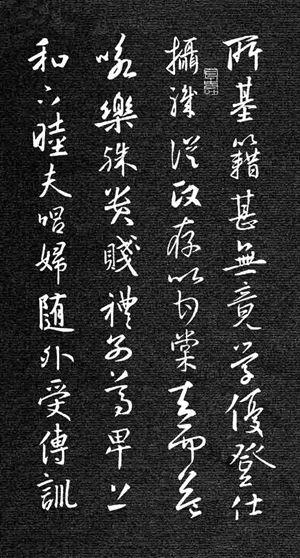 所基籍甚無竟學優登仕
攝職從政存以甘棠去而益
詠樂殊貴賤禮別尊卑上
和下睦夫唱婦随外受傅訓